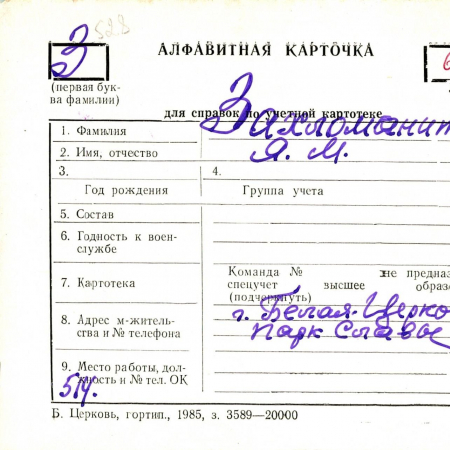 З 528
АЛФАВИТНАЯ КАРТОЧКА
(первая бук-
ва фамилии)
для справок по учетной картотеке
1. Фамилия Захломанит
2. Имя, отчество Я. М.
3. 4.
Год рождения Группа учета
5. Состав
6. Годность к воен-
службе
7. Картотека
Команда № не предназ
спецучет высшее образо
(подчеркнуть)
8. Адрес м-житель-
ства и № телефона
г. Белая-Церко
Парк Славы
9. Место работы, дол-
жность и № тел. ОК
514.
Б. Церковь, гортип., 1985, з. 3589—20000